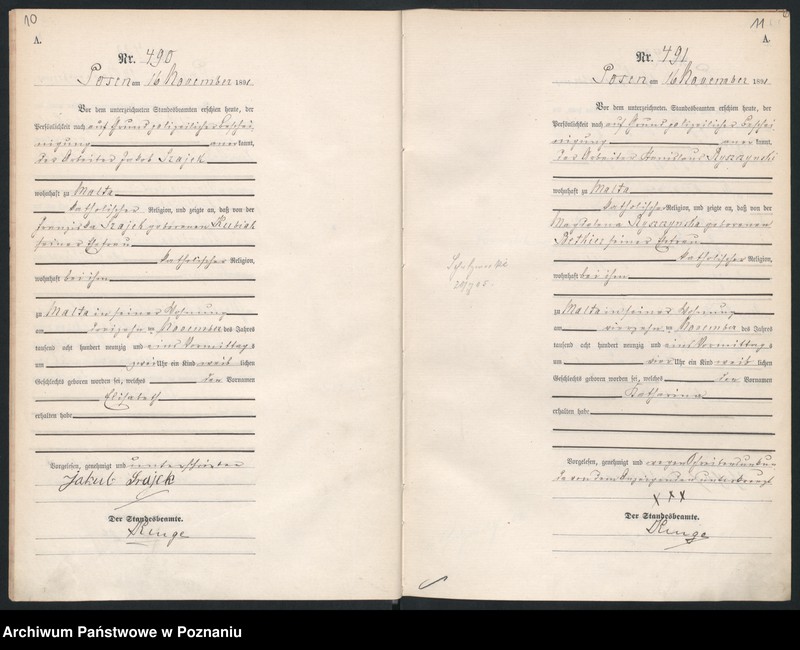 10
A.
Nr. 490
Posen am 16 November 1891
Vor dem unterzeichneten Standesbeamten erschien heute, der
Persönlichkeit nach auf Grund polizeilicher Beschei
nigung anerkannt,
der Arbeiter Jakob Srajek
wohnhaft zu Malta
katholischer Religion, und zeigte an, daß von der
Franziska Srajek geborenen Kubiak
seiner Ehefrau
katholischer Religion,
wohnhaft bei ihm
zu Malta in seiner Wohnung
am dreizehn ten November des Jahres
tausend acht hundert neunzig und eins Vormittags
um zwei Uhr ein Kind weiblichen
Geschlechts geboren worden sei, welches den Vornamen
Elisabeth
erhalten habe
Vorgelesen, genehmigt und unterschrieben
Jakub Srajek
Der Standesbeamte.
11
A.
Nr. 491
Posen am 16 November 1891
Vor dem unterzeichneten Standesbeamten erschien heute, der
Persönlichkeit nach auf Grund polizeilicher Beschei
nigung anerkannt,
der Arbeiter Stanislaus
wohnhaft zu Malta
katholischer Religion, und zeigte an, daß von der
Magdalena geborenen
seiner Ehefrau
katholischer Religion,
wohnhaft bei ihm
zu Malta in seiner Wohnung
am vierzehn ten November des Jahres
tausend acht hundert neunzig und eins Vormittags
um vier Uhr ein Kind weiblichen
Geschlechts geboren worden sei, welches den Vornamen
Katharina
erhalten habe
Vorgelesen, genehmigt und wegen Schreibensunkun
de von dem Anzeigenden unterkreuzt
x x x
Der Standesbeamte.
Archiwum Państwowe w Poznaniu